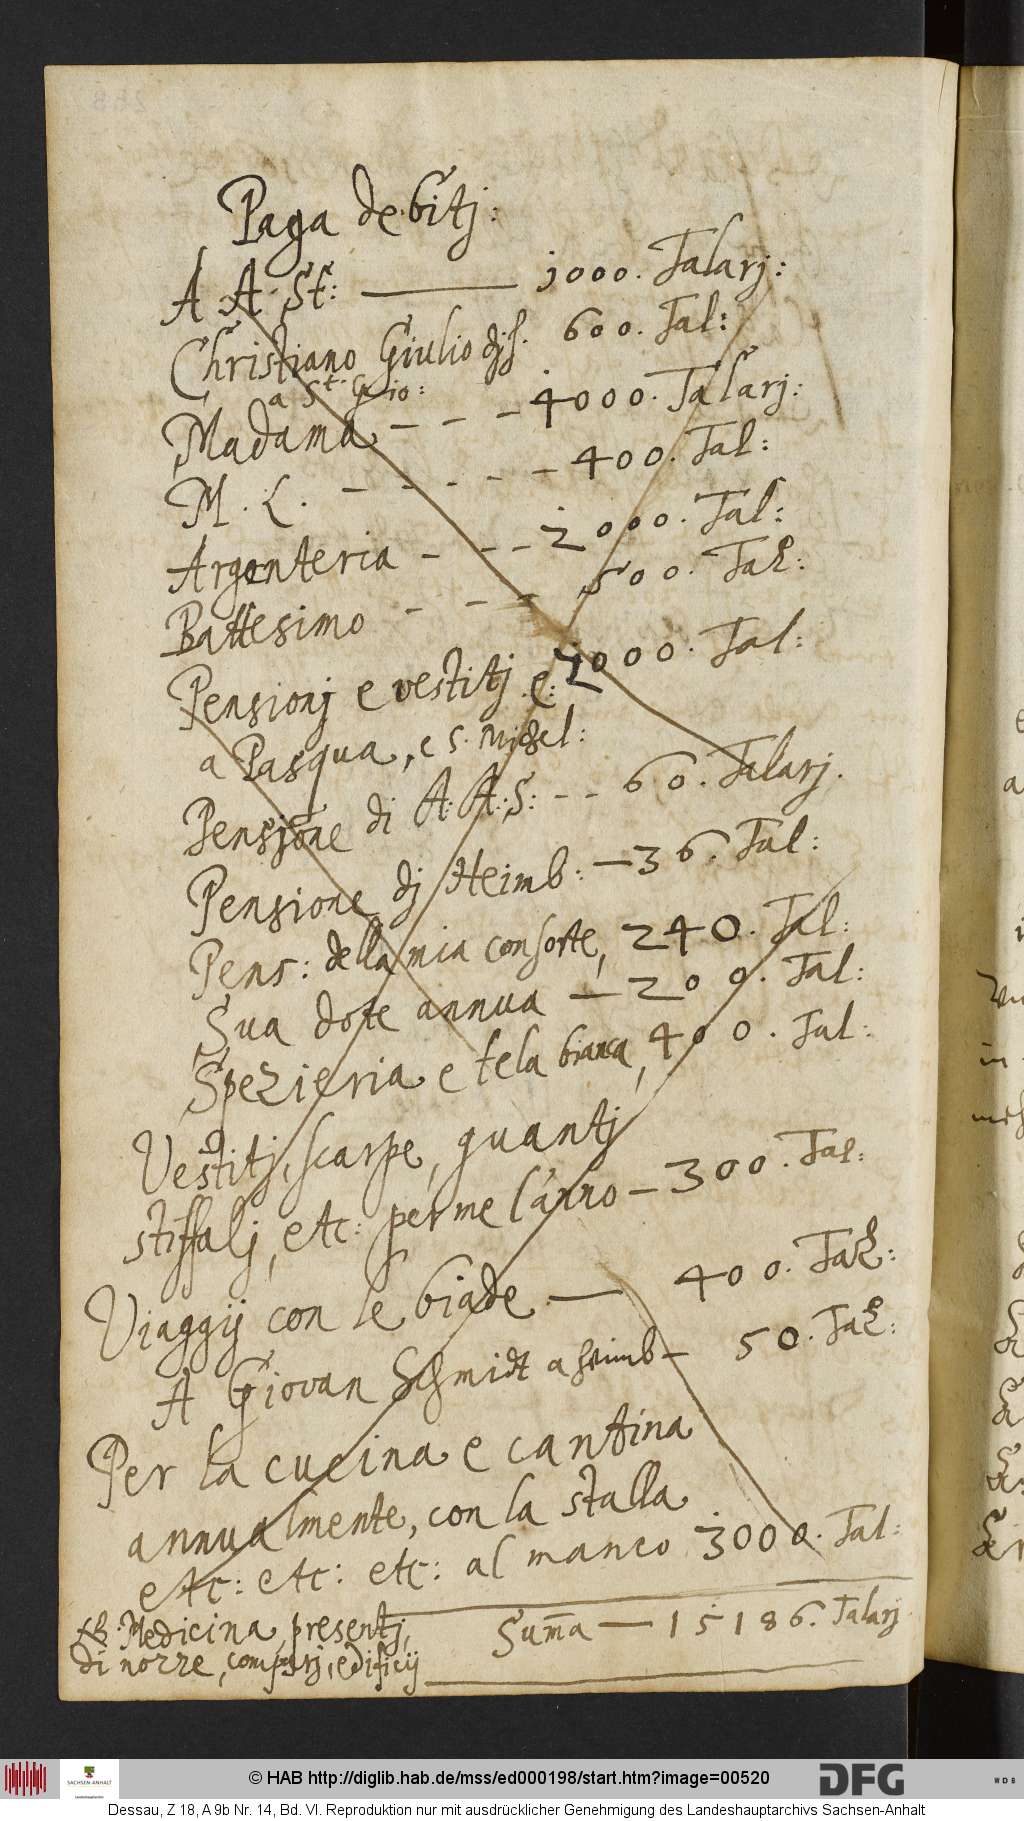 Paga debitj:
A A. St: 1000. Talarj:
Christiano Giulio 600. Tal:
a St.
Madama - - - 4000. Talarj:
M. L. - - - - - 400. Tal:
Argenteria - - - 2000. Tal:
Battesimo - - - 500. Tal:
Pensionj e vestitj e: 2000. Tal:
a Pasqua, e S. Michel:
Pensione di A: A: S: - - 60. Talarj.
Pensione dj Heimb: - 36. Tal:
Pens: della mia consorte, 240. Tal:
Sua dote annua - 200. Tal:
Spezieria e tela bianca, 400. Tal:
Vestitj, scarpe, guantj
stiffalj, etc: per me l'anno - 300. Tal:
Viaggij con le biade - 400. Tal:
A Giovan Schmidt a heimb - 50. Tal:
Per la cucina e cantina
annualmente, con la stalla
etc: etc: etc: al manco 3000. Tal:
Suma - 15186. Talarj
NB: Medicina, presentj,
di nozze, comparj, edificij
© HAB http://diglib.hab.de/mss/ed000198/start.htm?image=00520
SACHSEN-ANHALT
Landeshauptarchiv
DFG
WDB
Dessau, Z 18, A 9b Nr. 14, Bd. VI. Reproduktion nur mit ausdrücklicher Genehmigung des Landeshauptarchivs Sachsen-Anhalt